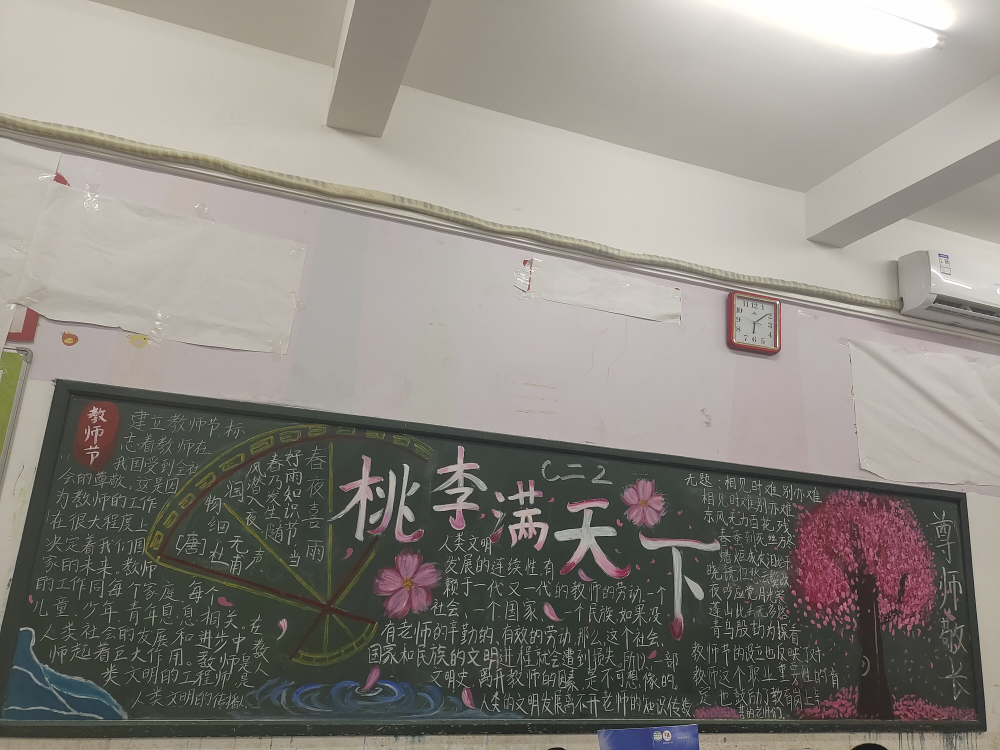 教师节
建立教师节标
志着教师在
我国受到全社
会的尊敬。这是因
为教师的工作
在很大程度上
决定着我们国
家的未来。教师
的工作同每个家庭、每个
儿童、少年、青年息息相关。在
人类社会的发展和进步中教人
师起着巨大作用。教师是
类文明的工程师
人类文明的传播
春夜喜雨
好雨知时节当
春乃发生随
风潜夜
润
细无声
[唐]杜甫
桃李满天下
C二2
人类文明
发展的连续性有
赖于一代又一代的教师的劳动。一个
社会、一个国家、一个民族,如果没
有老师的辛勤的、有效的劳动,那么,这个社会
国家和民族的文明进程就会遭到损失。所以一部
文明史,离开教师的是不可想像的。
人类的文明发展离不开老师的知识传
无题:相见时难别亦难
相见时难别亦难
东风无力百花残
春蚕到死丝方
青鸟殷勤为探看
教师节的设立也反映了对
教师这个职业重要性的肯
定
尊师敬长
12
1
2
3
4
5
6
7
8
9
10
11